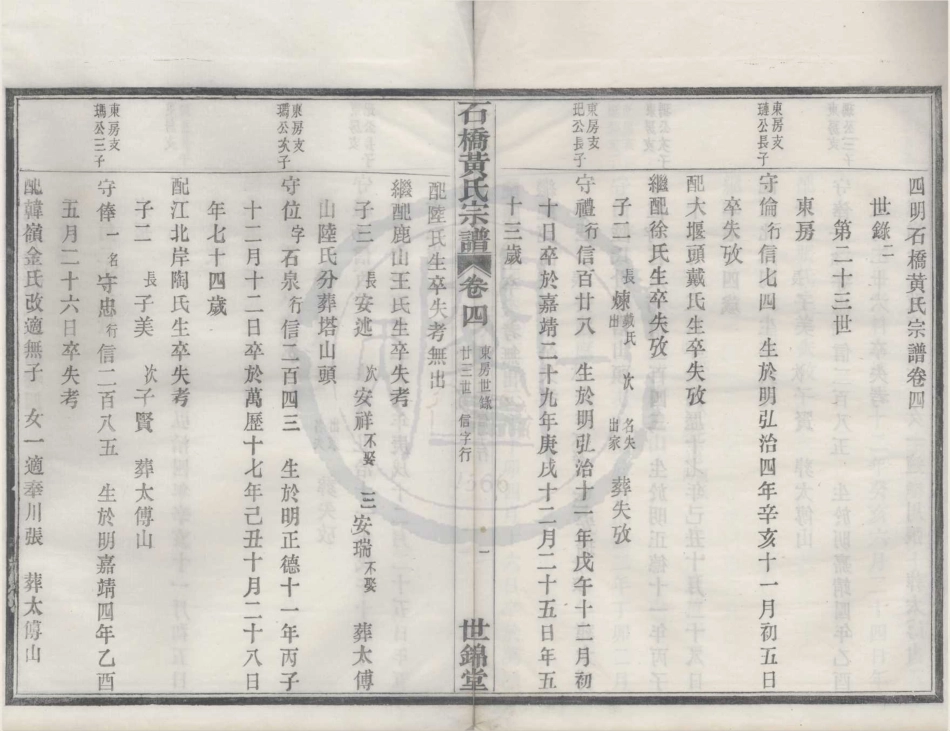 四明石橋黃氏宗譜卷四
世錄二
第二十三世
東房
東房支璉公長子
守倫行信七四 生於明弘治四年辛亥十一月初五日
卒失攷
配大堰頭戴氏生卒失攷
繼配徐氏生卒失攷
子二 長煉戴氏出 次名失出家 葬失攷
東房支玘公長子
守禮行信百廿八 生於明弘治十一年戊午十二月初
十日卒於嘉靖二十九年庚戌十二月二十五日年五
十三歲
石橋黃氏宗譜 卷四 東房世錄 廿三世 信字行 一 世錦堂
配陸氏生卒失考無出
繼配鹿山王氏生卒失考
子三 長安述 次安祥不娶 三安瑞不娶 葬太傅
山陸氏分葬塔山頭
東房支瑪公次子
守位字石泉行信二百四三 生於明正德十一年丙子
十二月十二日卒於萬歷十七年己丑十月二十八日
年七十四歲
配江北岸陶氏生卒失考
子二 長子美 次子賢 葬太傅山
東房支瑪公三子
守俸一名守忠行信二百八五 生於明嘉靖四年乙酉
五月二十六日卒失考
配韓嶺金氏改適無子 女一適奉川張 葬太傅山